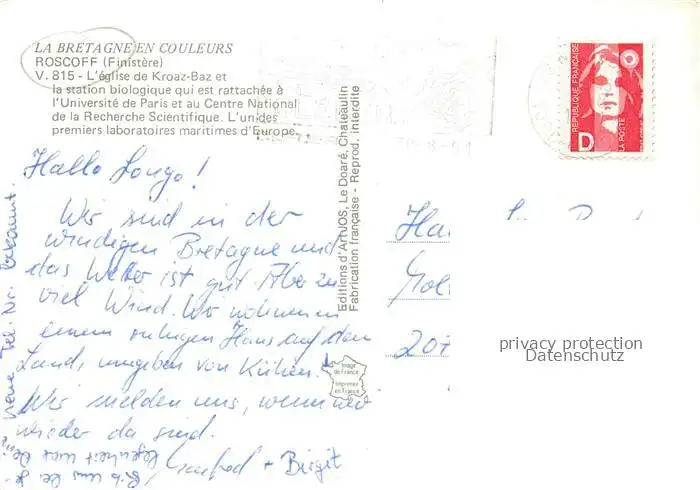 LA BRETAGNE EN COULEURS
ROSCOFF (Finistère)
V. 815 - L'église de Kroaz-Baz et
la station biologique qui est rattachée à
l'Université de Paris et au Centre National
de la Recherche Scientifique. L'un des
premiers laboratoires maritimes d'Europe.
Hallo
Wir sind in der
windigen Bretagne und
das Wetter ist gut. Aber zu
viel Wind. Wir wohnen in
einem ruhigen Haus auf dem
Land, umgeben von Kühen.
Wir melden uns, wenn wir
wieder da sind.
+ Birgit
neue Tel. Nr. bekannt.
Gib uns bei Ge-
legenheit mal
Editions d'Art JOS, Le Doaré, Chateaulin
Fabrication française - Reprod. interdite
Image
de France
Imprimée
en France
REPUBLIQUE FRANÇAISE
D
LA POSTE
207
privacy protection
Datenschutz